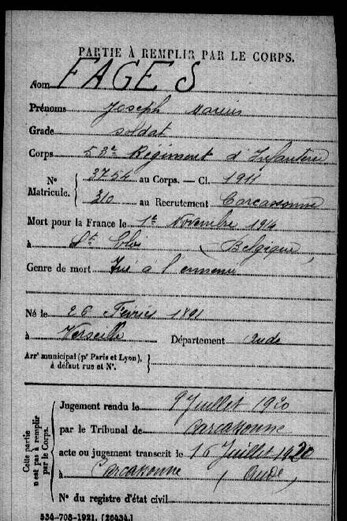 PARTIE À REMPLIR PAR LE CORPS.
Nom FAGES
Prénoms Joseph Marius
Grade soldat
Corps 53e Régiment d'Infanterie
N° Matricule. 3754 au Corps. — Cl. 1911
310 au Recrutement Carcassonne
Mort pour la France le 1er Novembre 1914
à St Eloi (Belgique)
Genre de mort Tué à l'ennemi
Né le 26 Février 1891
à Verzeille Département Aude
Arrt municipal (pr Paris et Lyon), à défaut rue et N°.
Cette partie n'est pas à remplir par le Corps.
Jugement rendu le 9 Juillet 1920
par le Tribunal de Carcassonne
acte ou jugement transcrit le 16 Juillet 1920
à Carcassonne (Aude)
N° du registre d'état civil
534-708-1921. [26434.]